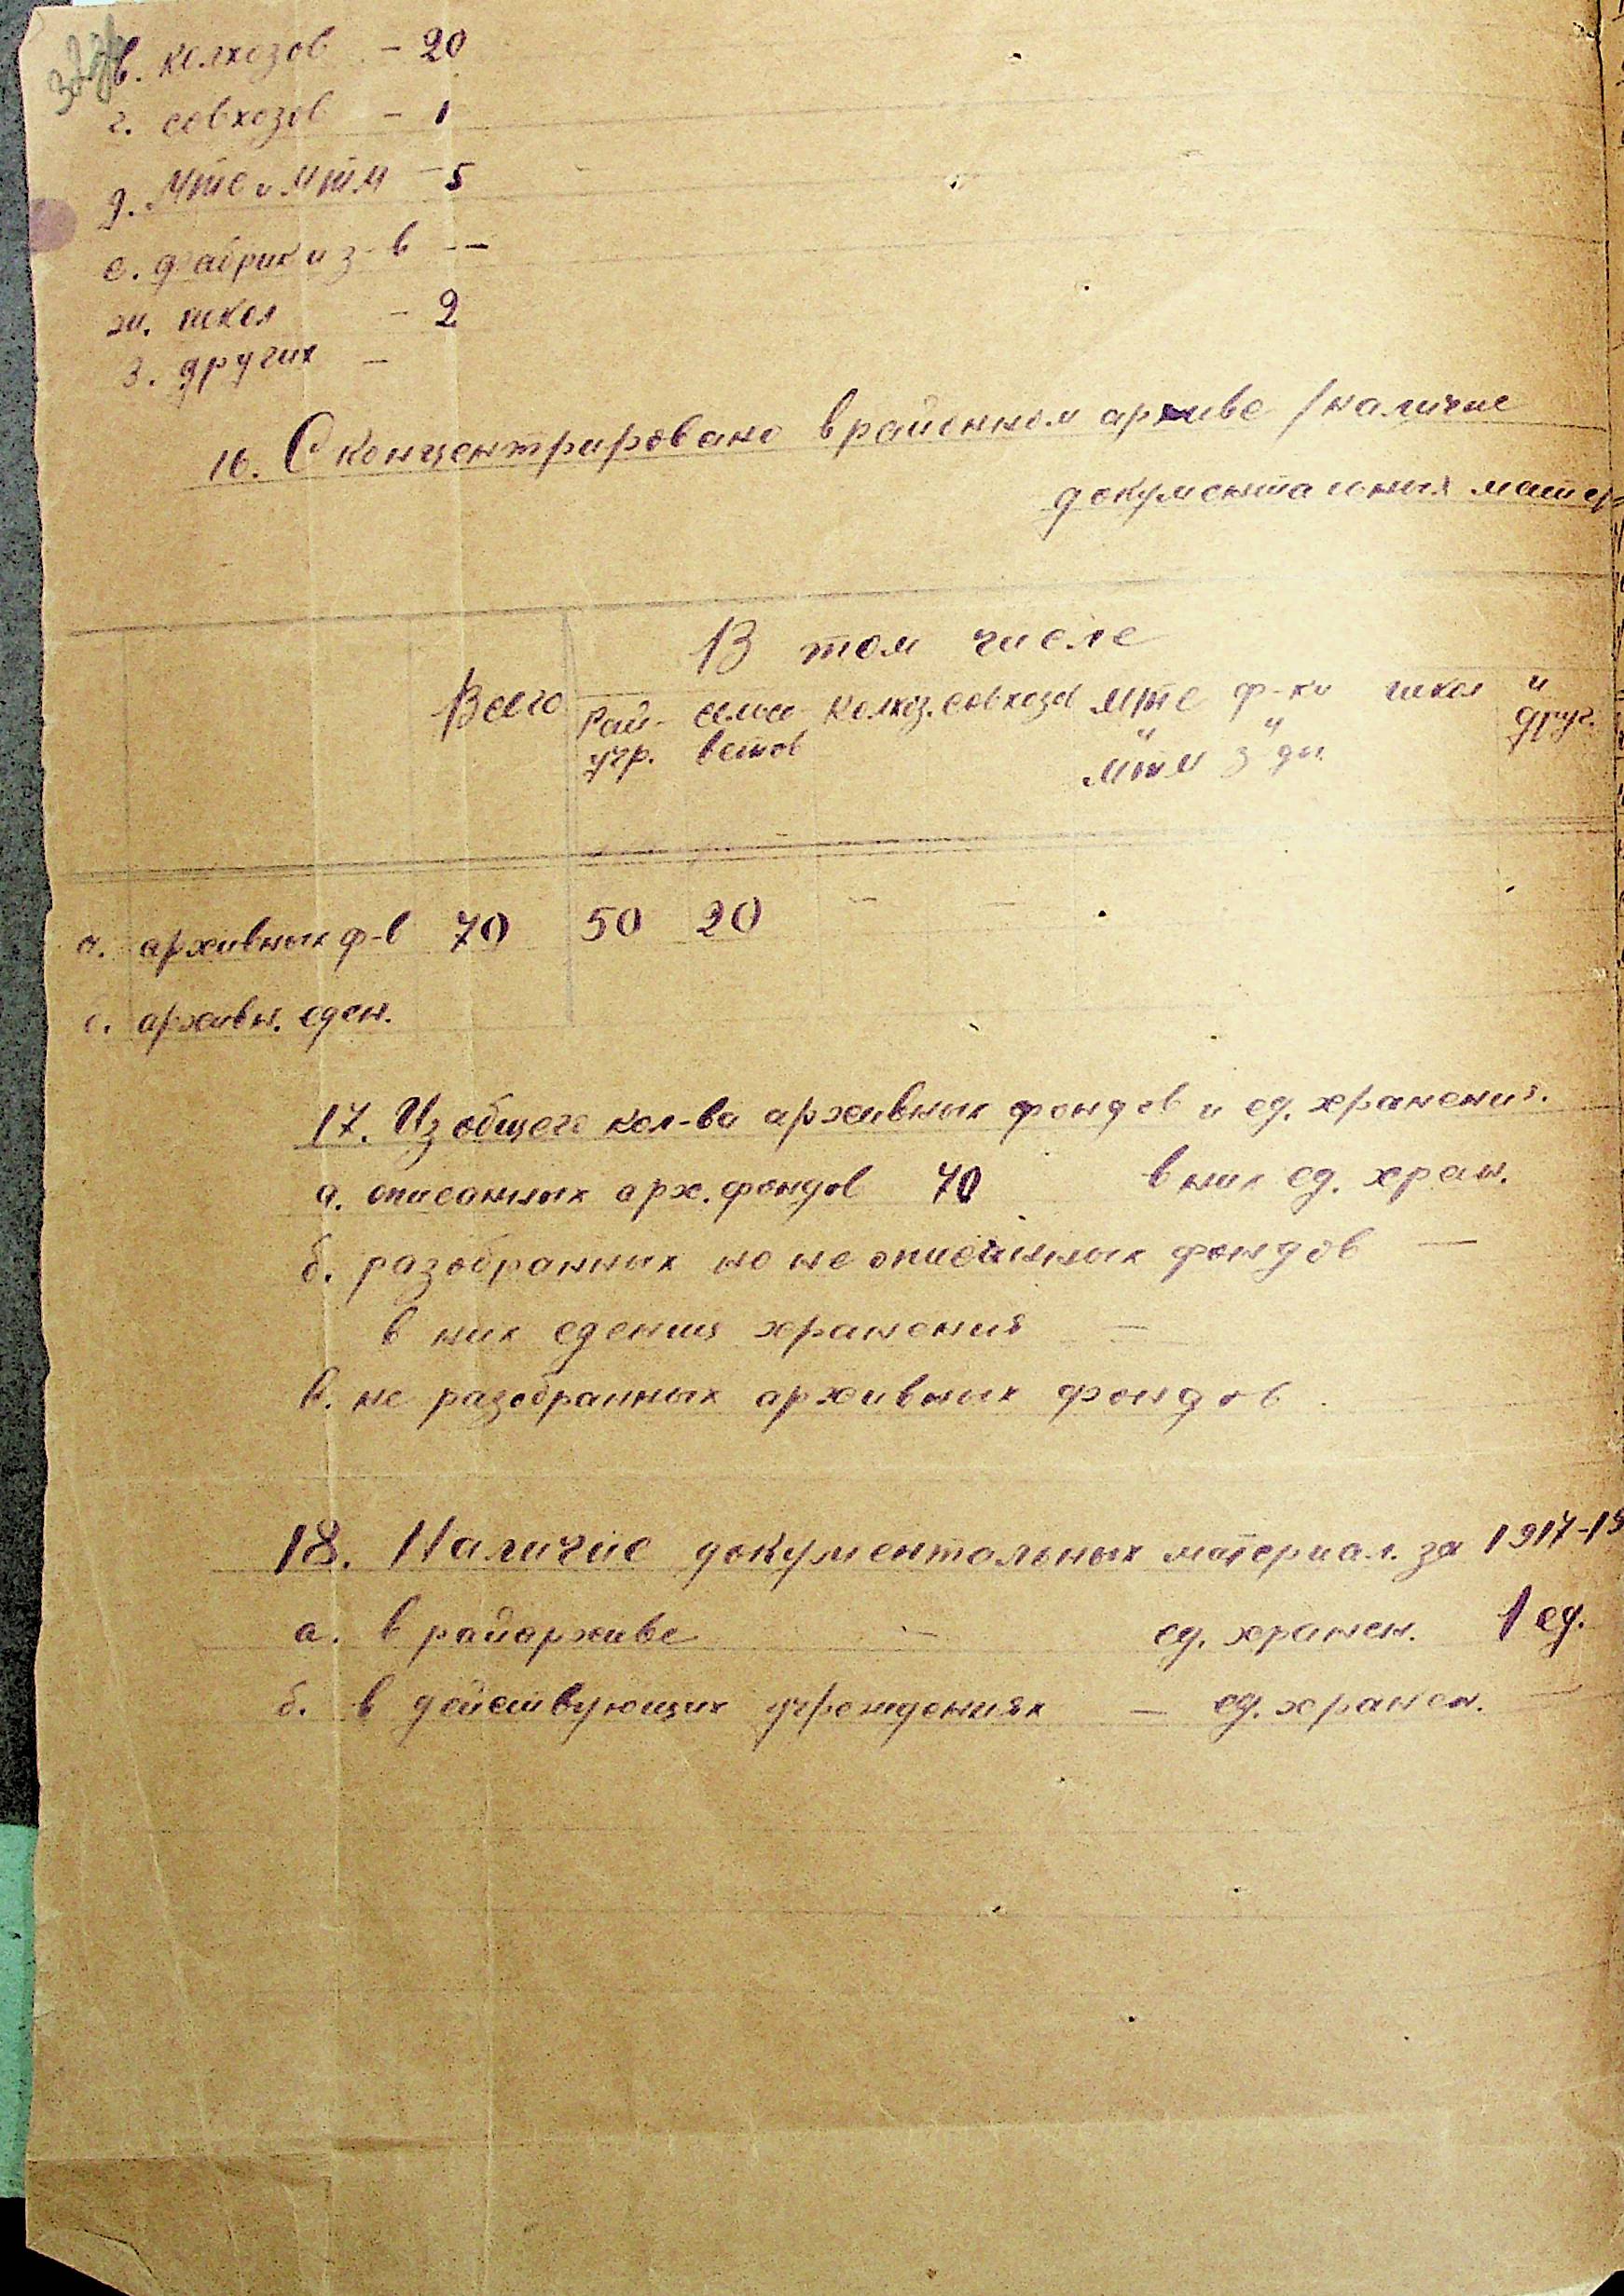 в. колхозов - 20
г. совхозов - 1
д. Мтс и Мтм - 5
е. фабрик и з-в - —
ж. школ - 2
з. других -
16. Сконцентрировано в районном архиве /наличие
документальных матер
В том числе
Всего Рай- сельсо- колхоз. совхозов Мтс ф-ки школ и
учр. ветов и и друг.
Мтм з-ды
а. архивных ф-в 70 50 20 —
б. архивн. еден.
17. Из общего кол-ва архивных фондов и ед. хранения.
а. описанных арх. фондов 70 в них ед. хран.
б. разобранных но не описанных фондов —
в них едениц хранения —
в. не разобранных архивных фондов
18. Наличие документальных материал. за 1917-19
а. в райархиве — ед. хранен. 1 ед.
б. в действующих учреждениях — ед. хранен. —